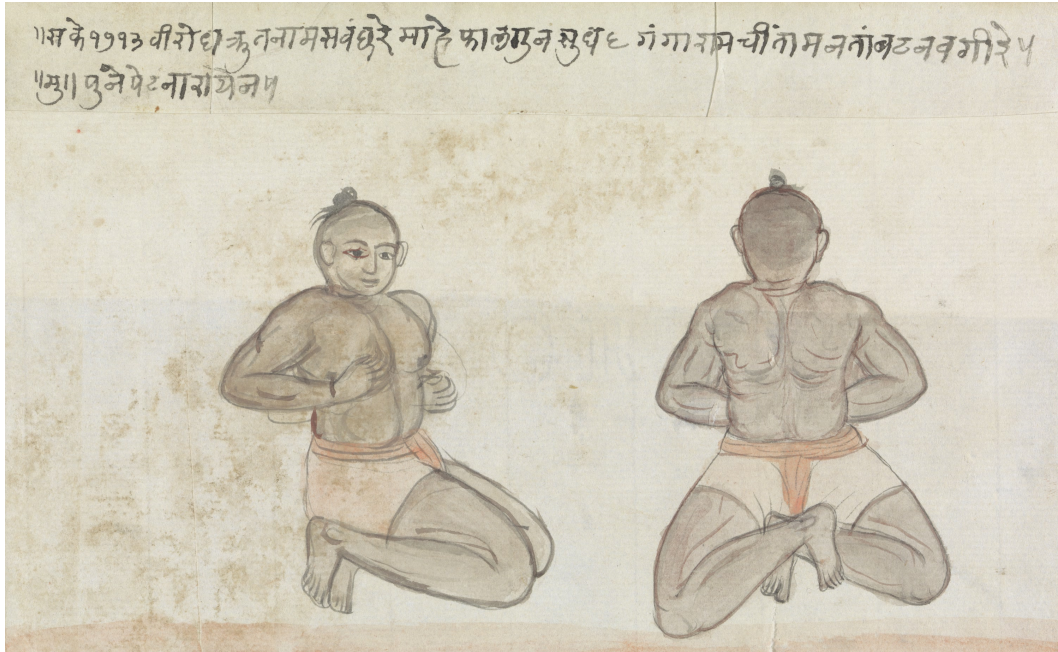 ॥सके १७१३ वीरोधक्रुतनाम सवंछरे माहे फालगुन सुध ६ गंगाराम चींतामन तांबट नवगीरे॥
॥मु॥ पुने पेट नारायेन॥